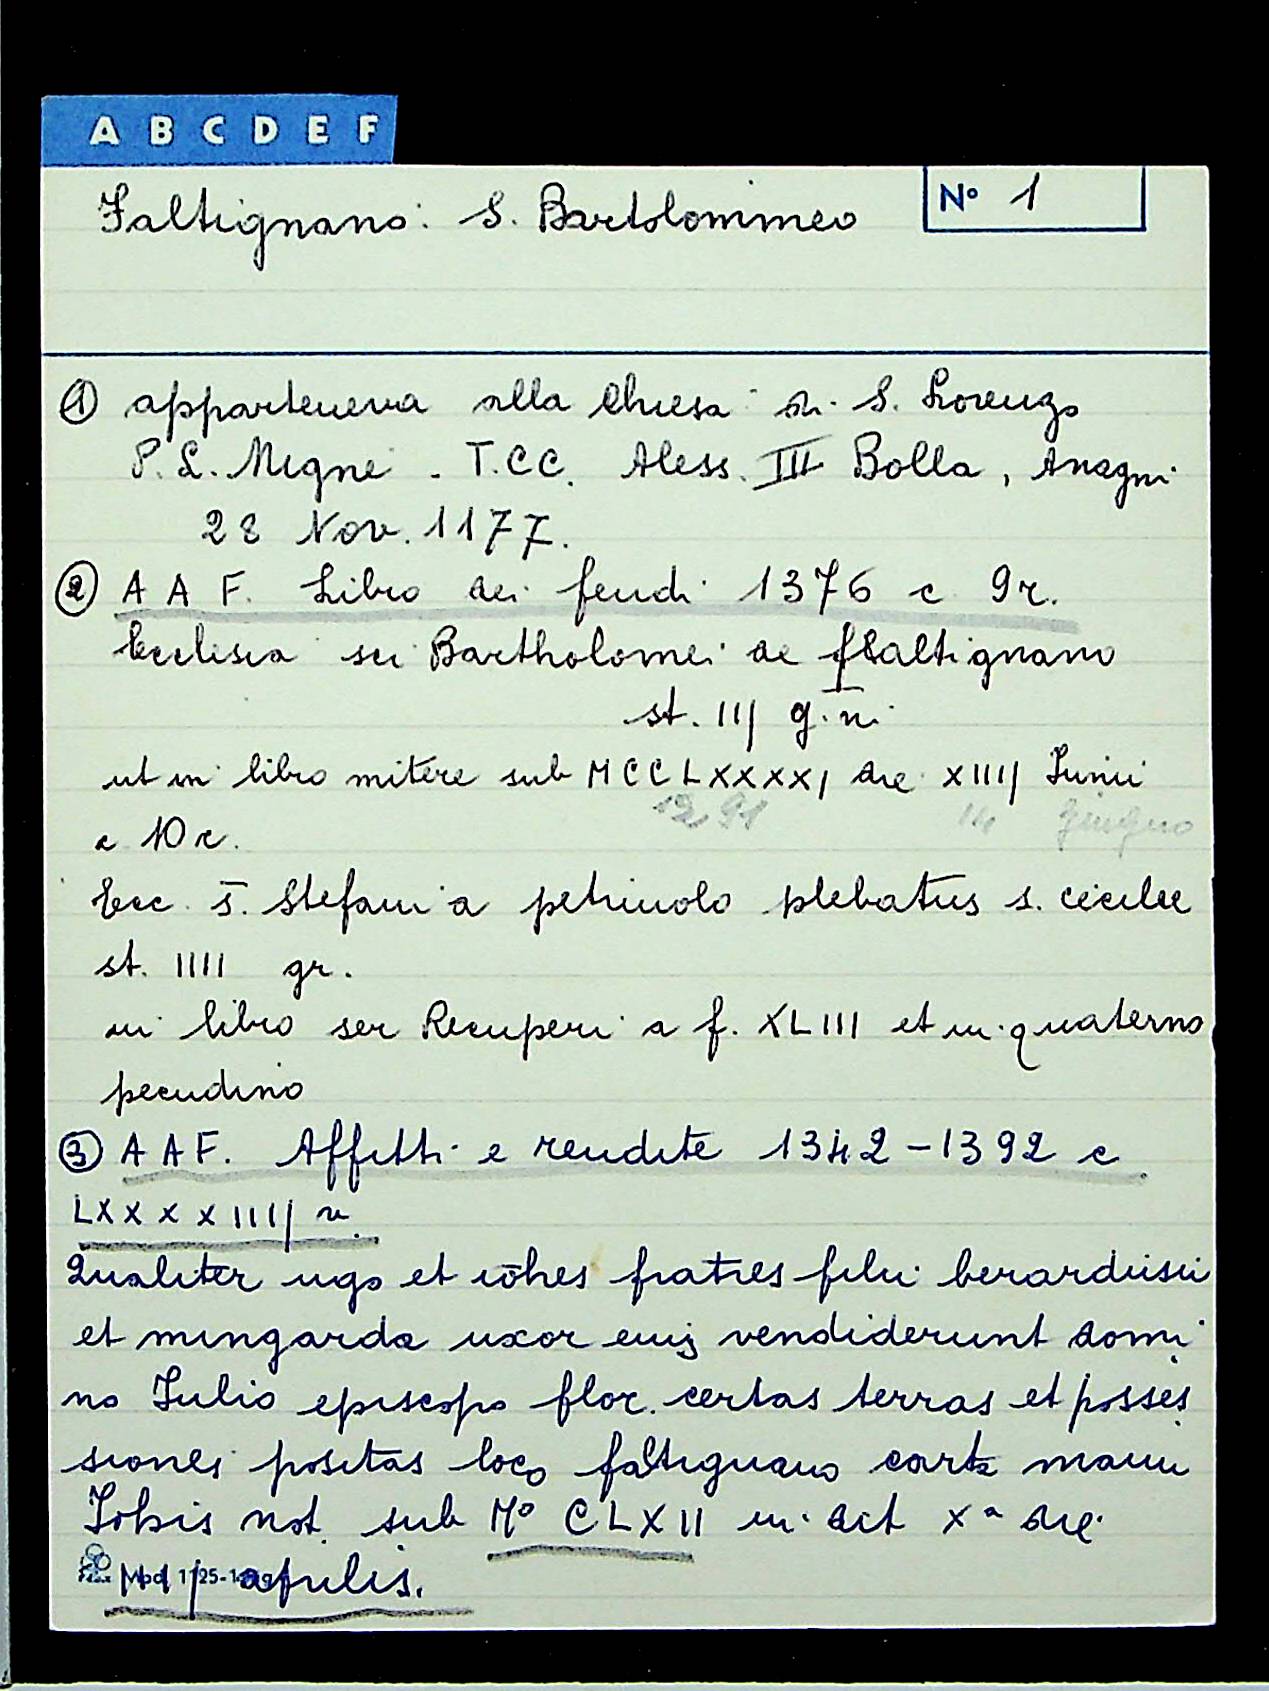 A B C D E F
Faltignano: S. Bartolommeo
N° 1
① apparteneva alla Chiesa di S. Lorenzo
P. L. Migne - T. CC. Aless. III Bolla, Anagni
28 Nov. 1177.
② A A F. Libro dei feudi 1376 c 9r.
Ecclesia sci Bartholomei de faltignano
st. III g.
ut in libro mitere sub MCCLXXXXI die XIIII Iunii
1291 14 giugno
c 10 r.
Ecc. s. Stefani a petriuolo plebatus s. Cecilee
st. IIII gr.
in libro ser Recuperi a f. XLIII et in quaterno
pecudino
③ A A F. Affitti e rendite 1342-1392 c
LXXXXIIII v.
Qualiter ugo et iohes fratres filii berarduisii
et mingarda uxor eius vendiderunt domi
no Iulio episcopo flor. certas terras et posses
siones positas loco faltignano carta manu
Iohis not. sub M° CLXII in dict Xa die
aprilis.